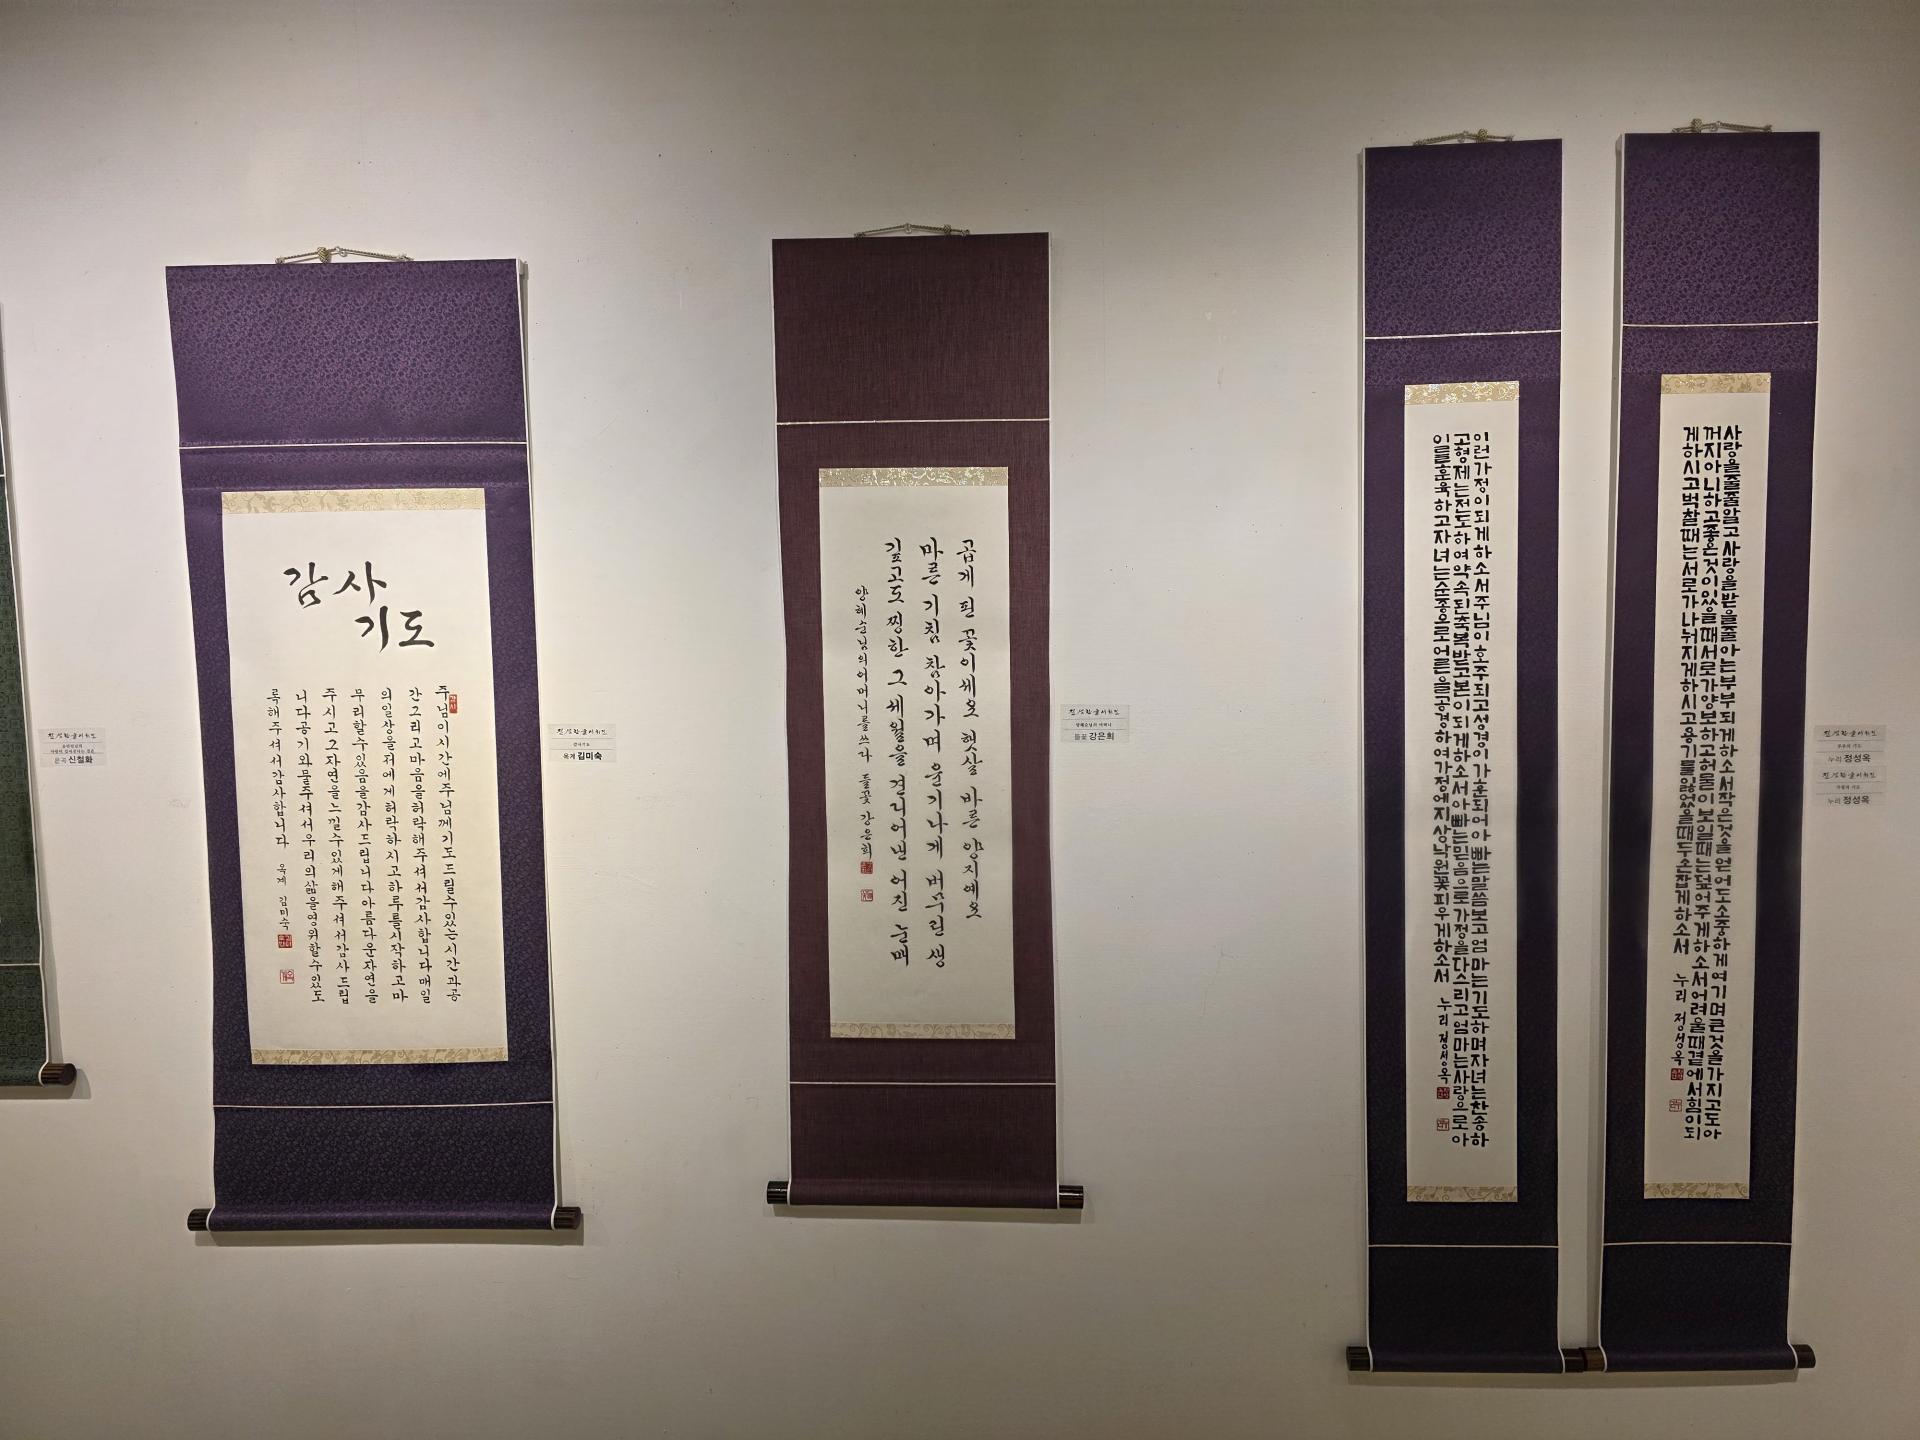 신철화
감사
기도
주님이시간에주님께기도드릴수있는시간과공
간그리고마음을허락해주셔서감사합니다매일
의일상을저에게허락하시고하루를시작하고마
무리할수있음을감사드립니다아름다운자연을
주시고그자연을느낄수있게해주셔서감사드립
니다공기와물주셔서우리의삶을영위할수있도
록해주셔서감사합니다 옥계 김미숙
감사기도
옥계 김미숙
곱게 핀 꽃이세요 햇살 바른 양지예요
마른 기침 참아가며 윤기나게 버무린 생
깊고도 찡한 그 세월을 견디어낸 어진 눈매
양혜순님의어머니를쓰다 들꽃 강은희
양혜순님의 어머니
들꽃 강은희
이런가정이되게하소서주님이호주되고성경이가훈되어아빠는말씀보고엄마는기도하며자녀는찬송하
고형제는전도하여약속된축복받고본이되게하소서아빠는믿음으로가정을다스리고엄마는사랑으로아
일를훈육하고자녀는순종으로어른을공경하여가정에지상낙원꽃피우게하소서 누리 정성옥
사랑을줄줄알고사랑을받을줄아는부부되게하소서작은것을얻어도소중하게여기며큰것을가지고도아
꺼지아니하고좋은것이있을때서로가양보하고허물이보일때는덮어주게하소서어려울때곁에서힘이되
게하시고벅찰때는서로가나눠지게하시고용기를잃었을때두손잡게하소서 누리 정성옥
부부의 기도
누리 정성옥
가정의 기도
누리 정성옥